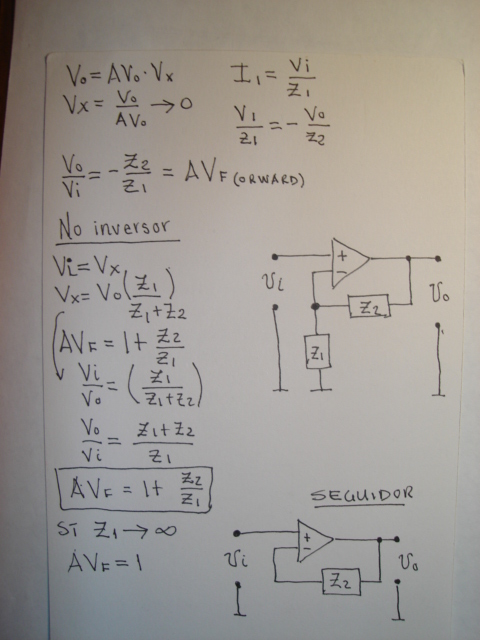 Vo = AVo · Vx
Vx = Vo/AVo → 0
I1 = Vi/Z1
V1/Z1 = - Vo/Z2
Vo/Vi = - Z2/Z1 = AVF(ORWARD)
No inversor
Vi = Vx
Vx = Vo (Z1/Z1+Z2)
AVF = 1 + Z2/Z1
Vi/Vo = (Z1/Z1+Z2)
Vo/Vi = Z1+Z2/Z1
AVF = 1+ Z2/Z1
Si Z1 → ∞
AVF = 1
+
-
Vi
Z2
Vo
Z1
SEGUIDOR
+
-
Vi
Z2
Vo